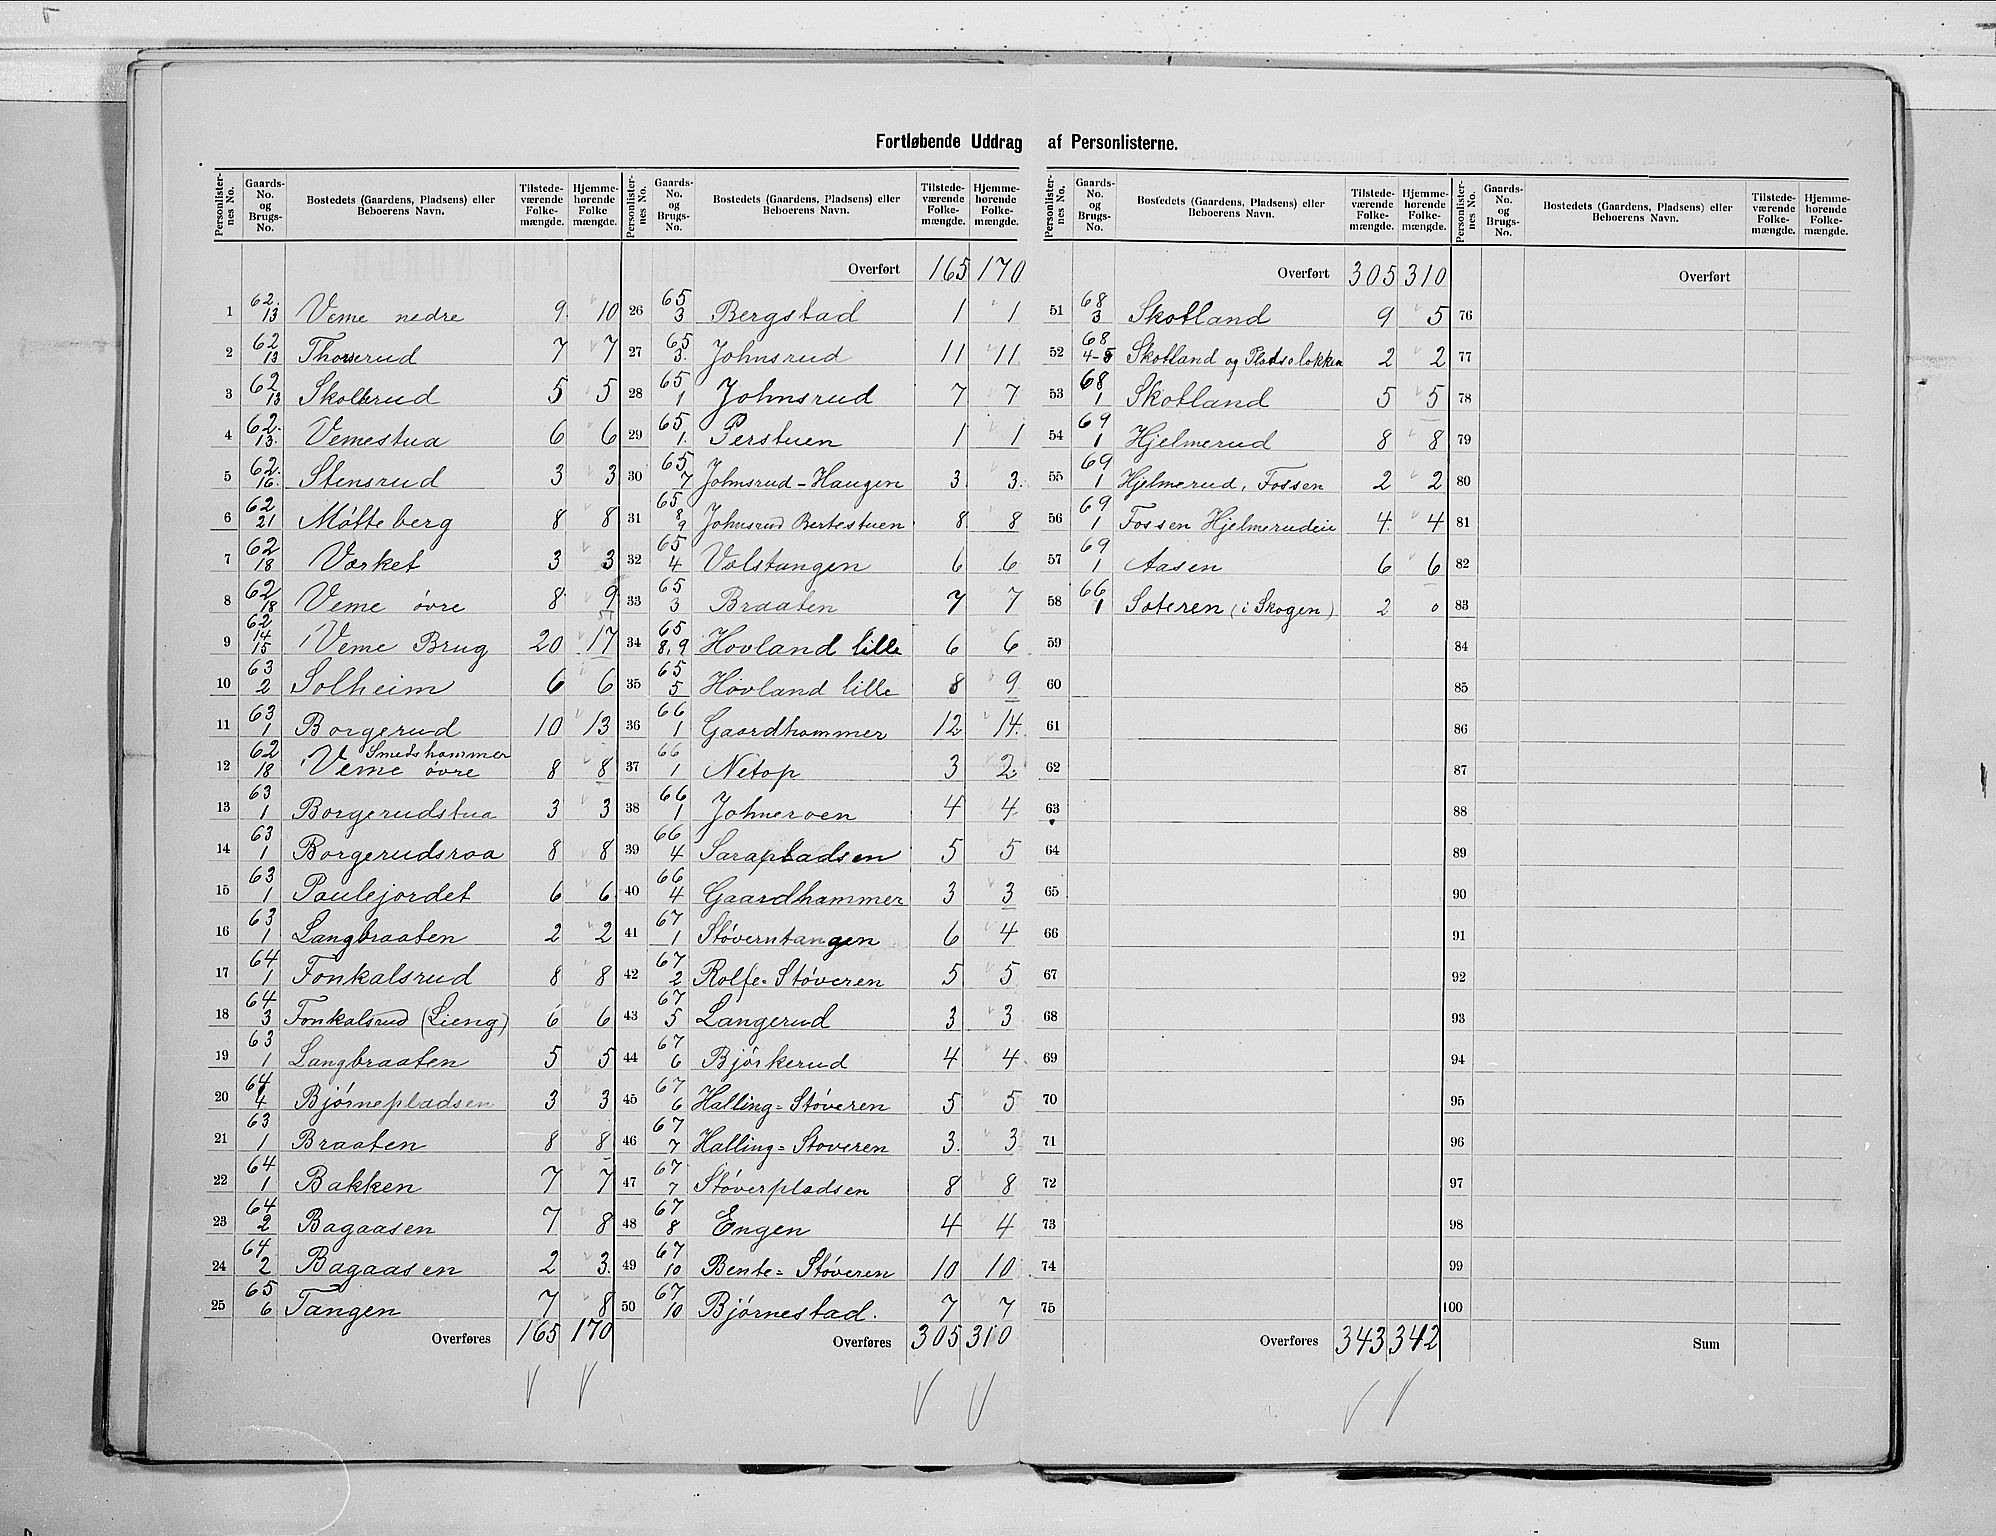 Fortløbende Uddrag af Personlisterne.
Personlister-nes No. | Gaards-No. og Brugs-No. | Bostedets (Gaardens, Pladsens) eller Beboerens Navn. | Tilstede-værende Folke-mængde. | Hjemme-hørende Folke mængde.
1 62.13 Veme nedre 9. 10
2 62 13 Thorserud 7 7
3 62 13 Skollerud 5 5
4 62. 13. Vemestua 6 6
5 62. 16. Stensrud 3 3
6 62 21 Møtteberg 8 8
7 62 18 Værket 3 3
8 62 18 Veme øvre 8 9
9 62 14 15 Veme Brug 20 17
10 63 2 Solheim 6 6
11 63 1 Borgerud 10 13
12 62 18 Veme øvre Smedshammer 8 8
13 63 1 Borgerudstua 3 3
14 63 1 Borgerudsroa 8 8
15 63 1 Paulejordet 6 6
16 63 1 Langbraaten 2 2
17 64 1 Fonkalsrud 8 8
18 64 3 Fonkalsrud (Lieng) 6 6
19 63 1 Langbraaten 5 5
20 64 4 Bjørnepladsen 3 3
21 63 1 Braaten 8 8
22 64 1 Bakken 7 7
23 64 2 Bagaasen 7 8
24 64 2 Bagaasen 2 3.
25 65 6 Tangen 7 8
Overføres 165 170
Personlister-nes No. | Gaards-No. og Brugs-No. | Bostedets (Gaardens, Pladsens) eller Beboerens Navn. | Tilstede-værende Folke-mængde. | Hjemme-hørende Folke-mængde.
Overført 165 170
26 65 3 Bergstad 1 1
27 65 3. Johnsrud 11 11.
28 65 1 Johnsrud 7 7
29 65 1. Perstuen 1 1
30 65 7 Johnsrud-Haugen 3 3.
31 65 8 9 Johnsrud Bertestuen 8 8
32 65 4 Volstangen 6 6
33 65 3 Braaten 7 7
34 65 8,9 Hovland lille 6 6
35 65 5 Hovland lille 8 9
36 66 1 Gaardhammer 12 14.
37 66 1 Netop 3 2
38 66 1 Johneroen 4 4
39 66 4 Sarapladsen 5 5
40 66 4 Gaardhammer 3 3
41 67 1 Støverntangen 6 4
42 67 2 Rolfe-Støveren 5 5
43 67 5 Langerud 3 3
44 67 6 Bjørkerud 4 4
45 67 6 Halling=Støveren 5 5
46 67 7 Halling=Støveren 3. 3
47 67 7 Støverpladsen 8 8
48 67 8 Engen 4 4
49 67 10 Bente=Støveren 10 10
50 67 10 Bjørnestad. 7 7
Overføres 305 310
Personlister-nes No. | Gaards-No. og Brugs-No. | Bostedets (Gaardens, Pladsens) eller Beboerens Navn. | Tilstede-værende Folke-mængde. | Hjemme-hørende Folke-mængde.
Overført 305 310
51 68 3 Skotland 9 5
52 68 4-5 Skotland og Pladseløkken 2 2
53 68 1 Skotland 5 5
54 69 1 Hjelmerud 8 8
55 69 1 Hjelmerud, Fossen 2 2
56 69 1 Fossen Hjelmerudeie 4. 4
57 69 1 Aasen 6 6
58 66 1 Soteren (i Skogen) 2 0
59
60
61
62
63
64
65
66
67
68
69
70
71
72
73
74
75
Overføres 343 342
Personlister-nes No. | Gaards-No. og Brugs-No. | Bostedets (Gaardens, Pladsens) eller Beboerens Navn. | Tilstede-værende Folke-mængde. | Hjemme-hørende Folke-mængde.
Overført
76
77
78
79
80
81
82
83
84
85
86
87
88
89
90
91
92
93
94
95
96
97
98
99
100
Sum